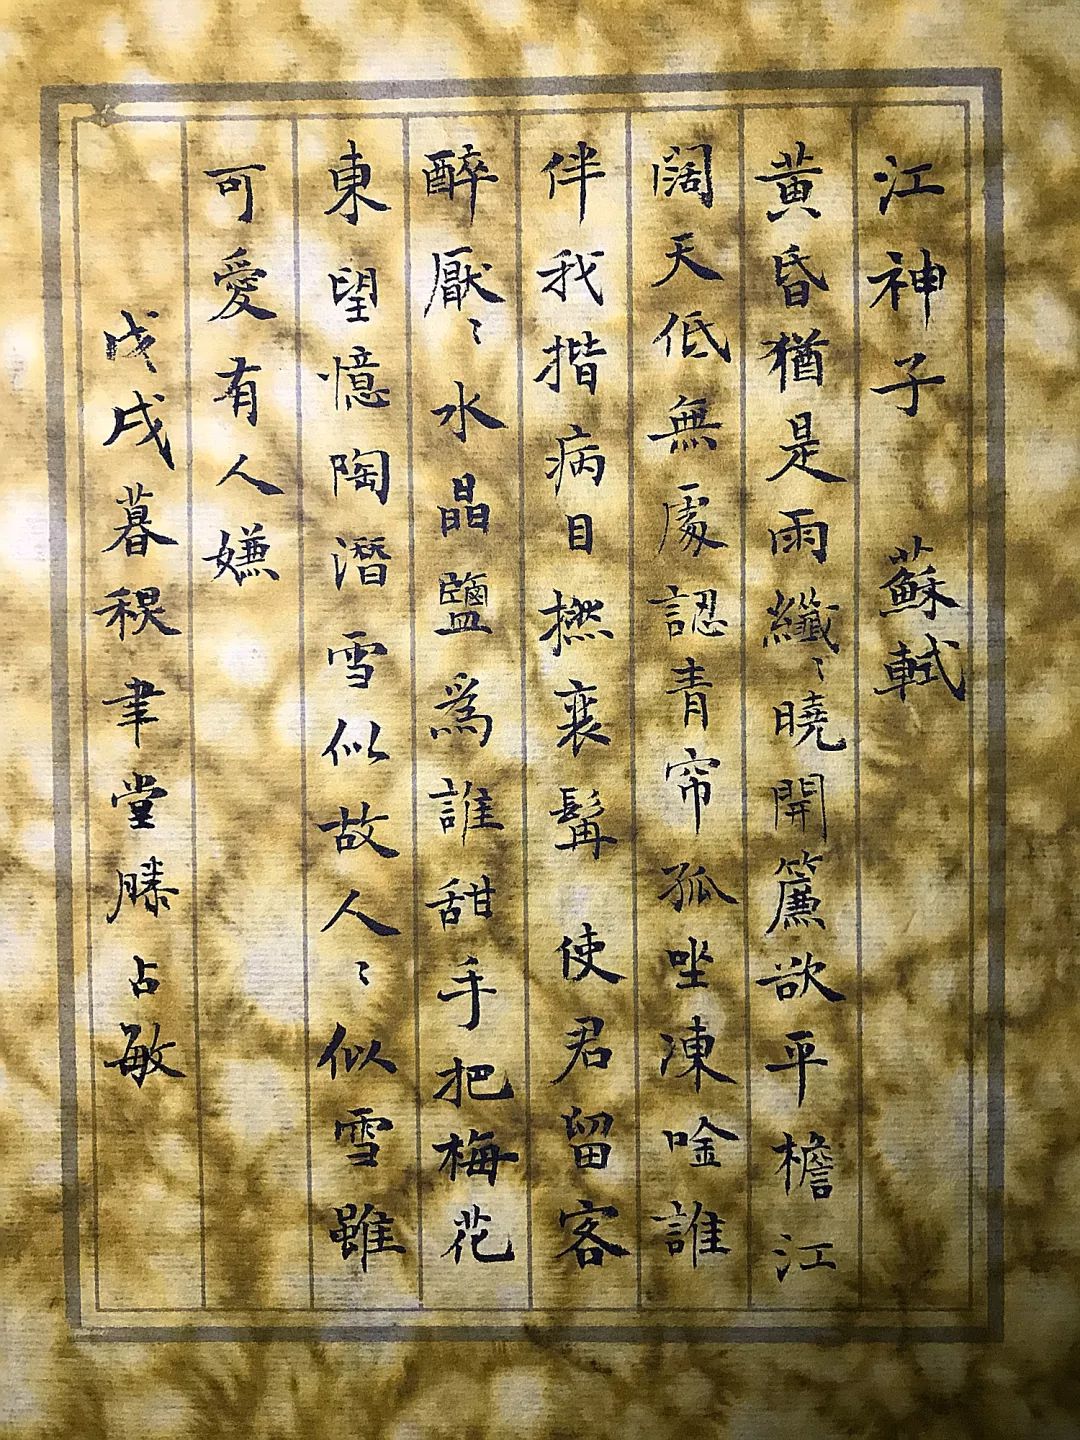 江神子 蘇軾
黃昏猶是雨纖〻曉開簾欲平檐江
闊天低無處認青帘孤坐凍唫誰
伴我揩病目撚衰髯 使君留客
醉厭〻水晶鹽爲誰甜手把梅花
東望憶陶潛雪似故人〻似雪雖
可愛有人嫌
戊戌暮聿堂滕占敏